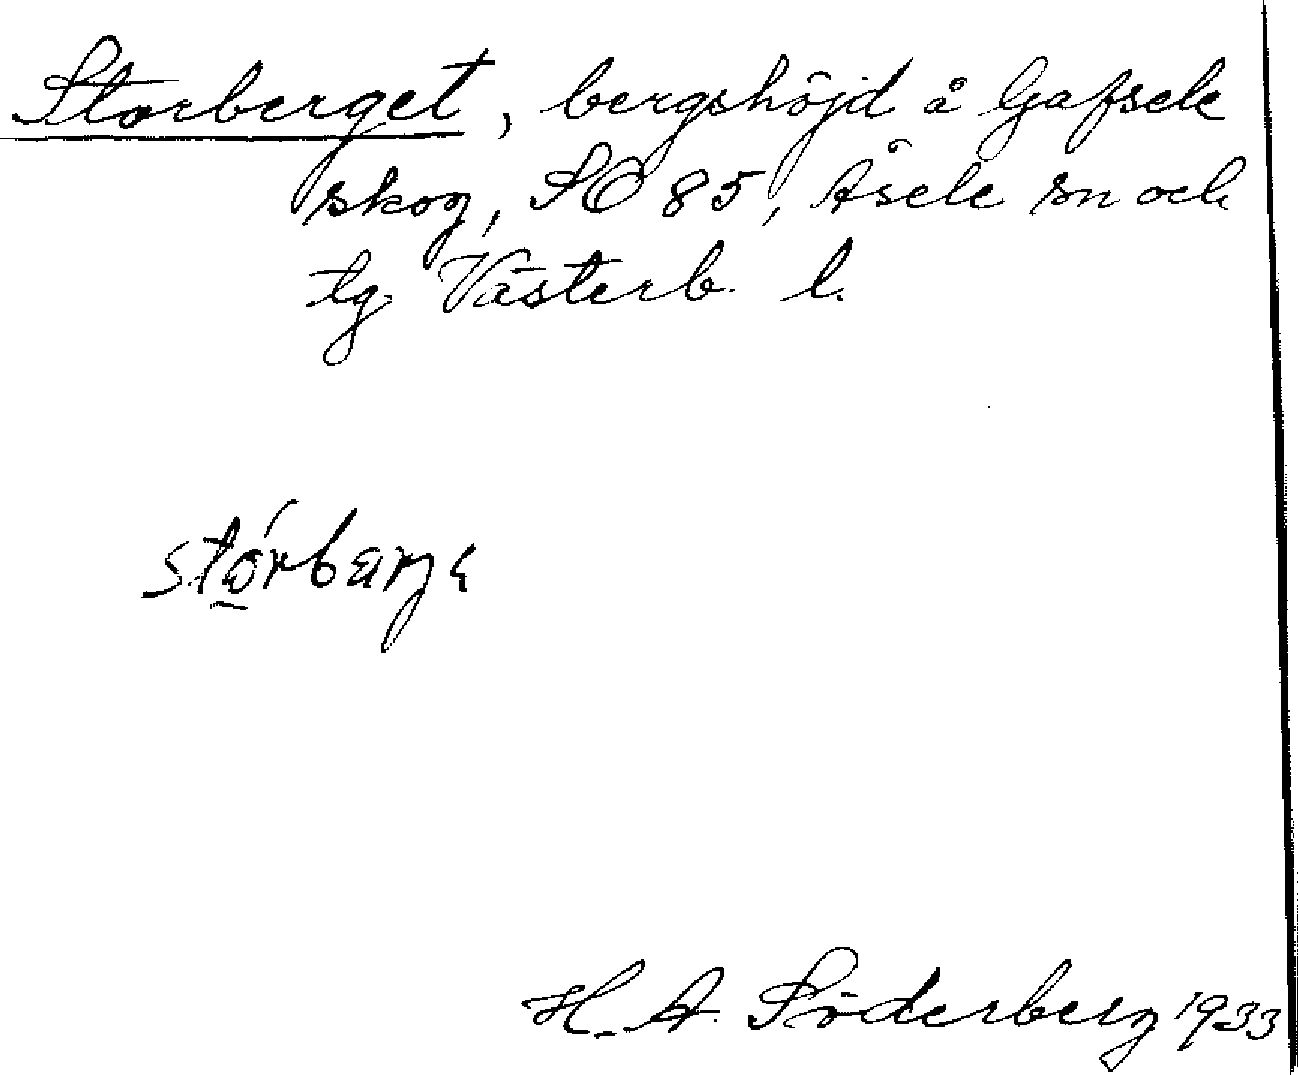 Storberget, bergshöjd å Gafsele
skog, SO 85, Åsele sn och
tg Västerb. l.
H. A. Söderberg 1933